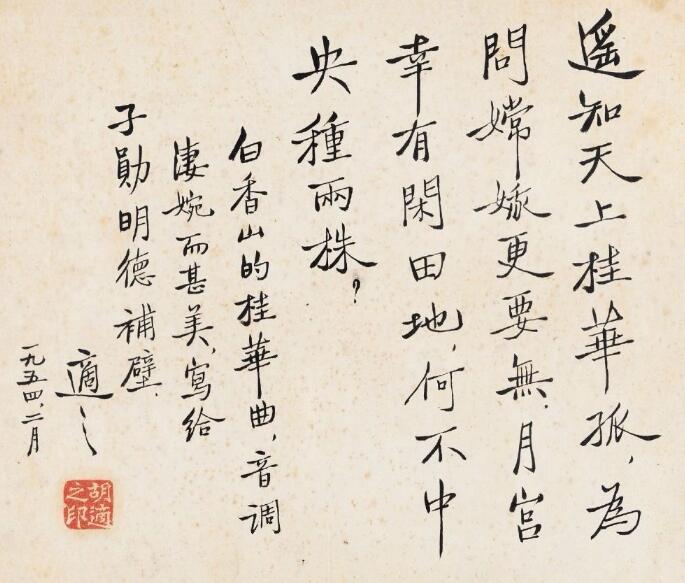 遙知天上桂華孤,為
問嫦娥更要無.月宮
幸有閑田地,何不中
央種兩株?
白香山的桂華曲,音调
淒婉而甚美,寫給
子勛明德補壁.
適之
一九五四,二月
胡適之印